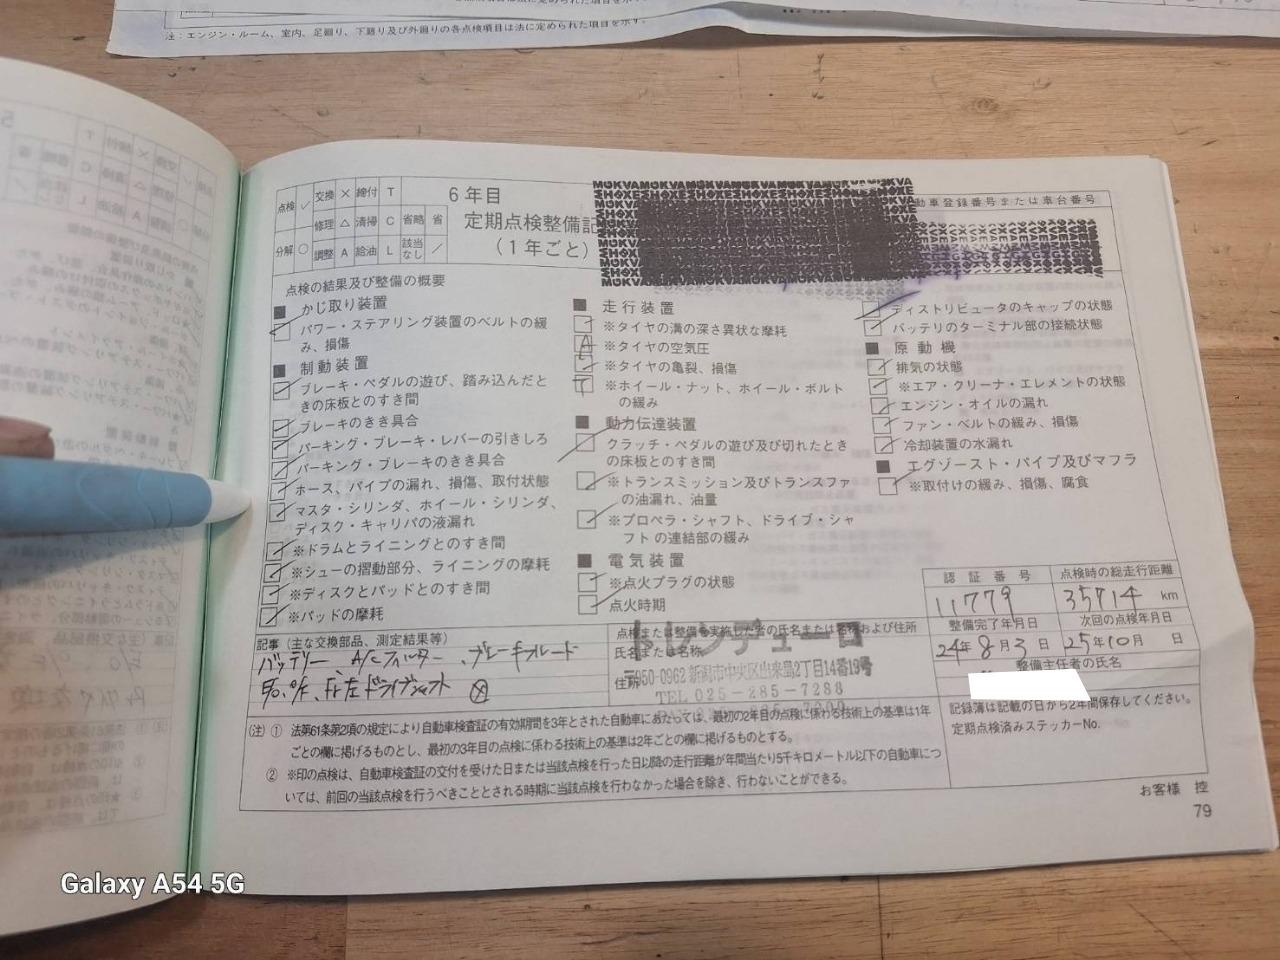 注：エンジン・ルーム、室内、足廻り、下廻り及び外廻りの各点検項目は法に定められた項目を示す。
点検 ✓ 交換 × 締付 T
修理 △ 清掃 C 省略 省
分解 ○ 調整 A 給油 L 該当なし ／
6年目
定期点検整備記
（1年ごと）
動車登録番号または車台番号
点検の結果及び整備の概要
■ かじ取り装置
パワー・ステアリング装置のベルトの緩
み、損傷
■ 制動装置
ブレーキ・ペダルの遊び、踏み込んだと
きの床板とのすき間
ブレーキのきき具合
パーキング・ブレーキ・レバーの引きしろ
パーキング・ブレーキのきき具合
ホース、パイプの漏れ、損傷、取付状態
マスタ・シリンダ、ホイール・シリンダ、
ディスク・キャリパの液漏れ
※ドラムとライニングとのすき間
※シューの摺動部分、ライニングの摩耗
※ディスクとパッドとのすき間
※パッドの摩耗
■ 走行装置
※タイヤの溝の深さ異状な摩耗
A ※タイヤの空気圧
※タイヤの亀裂、損傷
T ※ホイール・ナット、ホイール・ボルト
の緩み
■ 動力伝達装置
クラッチ・ペダルの遊び及び切れたとき
の床板とのすき間
※トランスミッション及びトランスファ
の油漏れ、油量
※プロペラ・シャフト、ドライブ・シャ
フトの連結部の緩み
■ 電気装置
※点火プラグの状態
点火時期
ディストリビュータのキャップの状態
バッテリのターミナル部の接続状態
■ 原動機
排気の状態
※エア・クリーナ・エレメントの状態
エンジン・オイルの漏れ
ファン・ベルトの緩み、損傷
冷却装置の水漏れ
■ エグゾースト・パイプ及びマフラ
※取付けの緩み、損傷、腐食
記事（主な交換部品、測定結果等）
バッテリー、A/Cフィルター、ブレーキフルード
Fr左ドライブシャフト
点検または整備を実施した者の氏名または名称および住所
氏名または名称
トレンヂューロ
住所
〒950-0962 新潟市中央区出来島2丁目14番19号
TEL 025-285-7288
認証番号
11779
点検時の総走行距離
35714 km
整備完了年月日
24年8月3日
次回の点検年月日
25年10月 日
整備主任者の氏名
記録簿は記載の日から2年間保存してください。
定期点検済みステッカーNo.
（注）① 法第61条第2項の規定により自動車検査証の有効期間を3年とされた自動車にあたっては、最初の2年目の点検に係わる技術上の基準は1年
ごとの欄に掲げるものとし、最初の3年目の点検に係わる技術上の基準は2年ごとの欄に掲げるものとする。
② ※印の点検は、自動車検査証の交付を受けた日または当該点検を行った日以降の走行距離が年間当たり5千キロメートル以下の自動車につ
いては、前回の当該点検を行うべきこととされる時期に当該点検を行わなかった場合を除き、行わないことができる。
お客様 控
79
Galaxy A54 5G